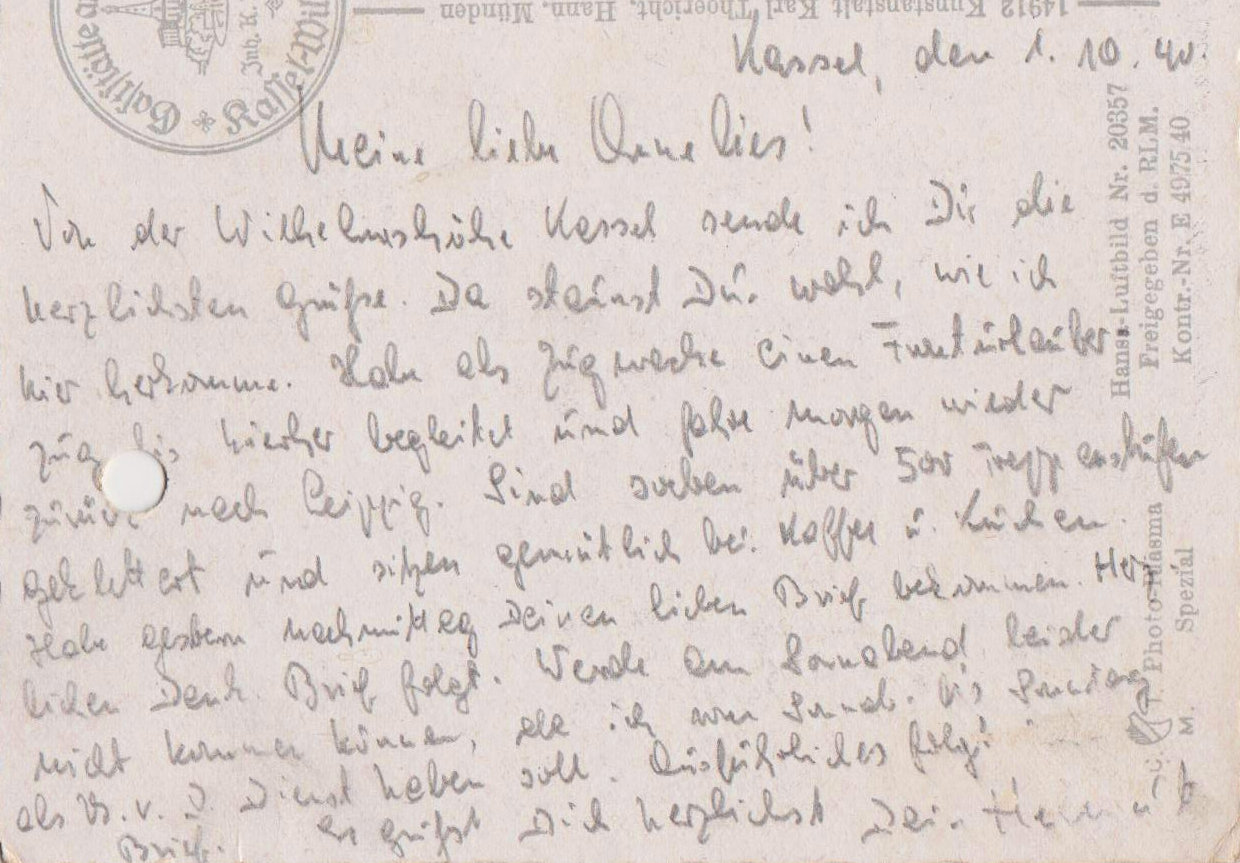 14912 Kunstanstalt Karl Thoericht, Hann. Münden
Gaststätte
Inh. K.
Kassel-Wil
Kassel, den 1. 10. 40.
Meine liebe Annelies!
Von der Wilhelmshöhe Kassel sende ich Dir die
herzlichsten Grüße. Da staunst Du wohl, wie ich
hier herkomme. Habe als Zugwache einen Fronturlauber
zug bis hierher begleitet und fahre morgen wieder
zurück nach Leipzig. Sind soeben über 500 Treppenstufen
geklettert und sitzen gemütlich bei Kaffee u. Kuchen.
Habe gestern nachmittag Deinen lieben Brief bekommen. Herz
lichen Dank. Brief folgt. Werde am Sonnabend leider
nicht kommen können, da ich vom Sonnab. bis Sonntag
als U. v. D. Dienst haben soll. Ausführliches folgt
Brief. Es grüßt Dich herzlichst Dein Helmut
Hansa-Luftbild Nr. 20357
Freigegeben d. RLM.
Kontr.-Nr. E 4975 40
Photo-Plasma
M. Spezial